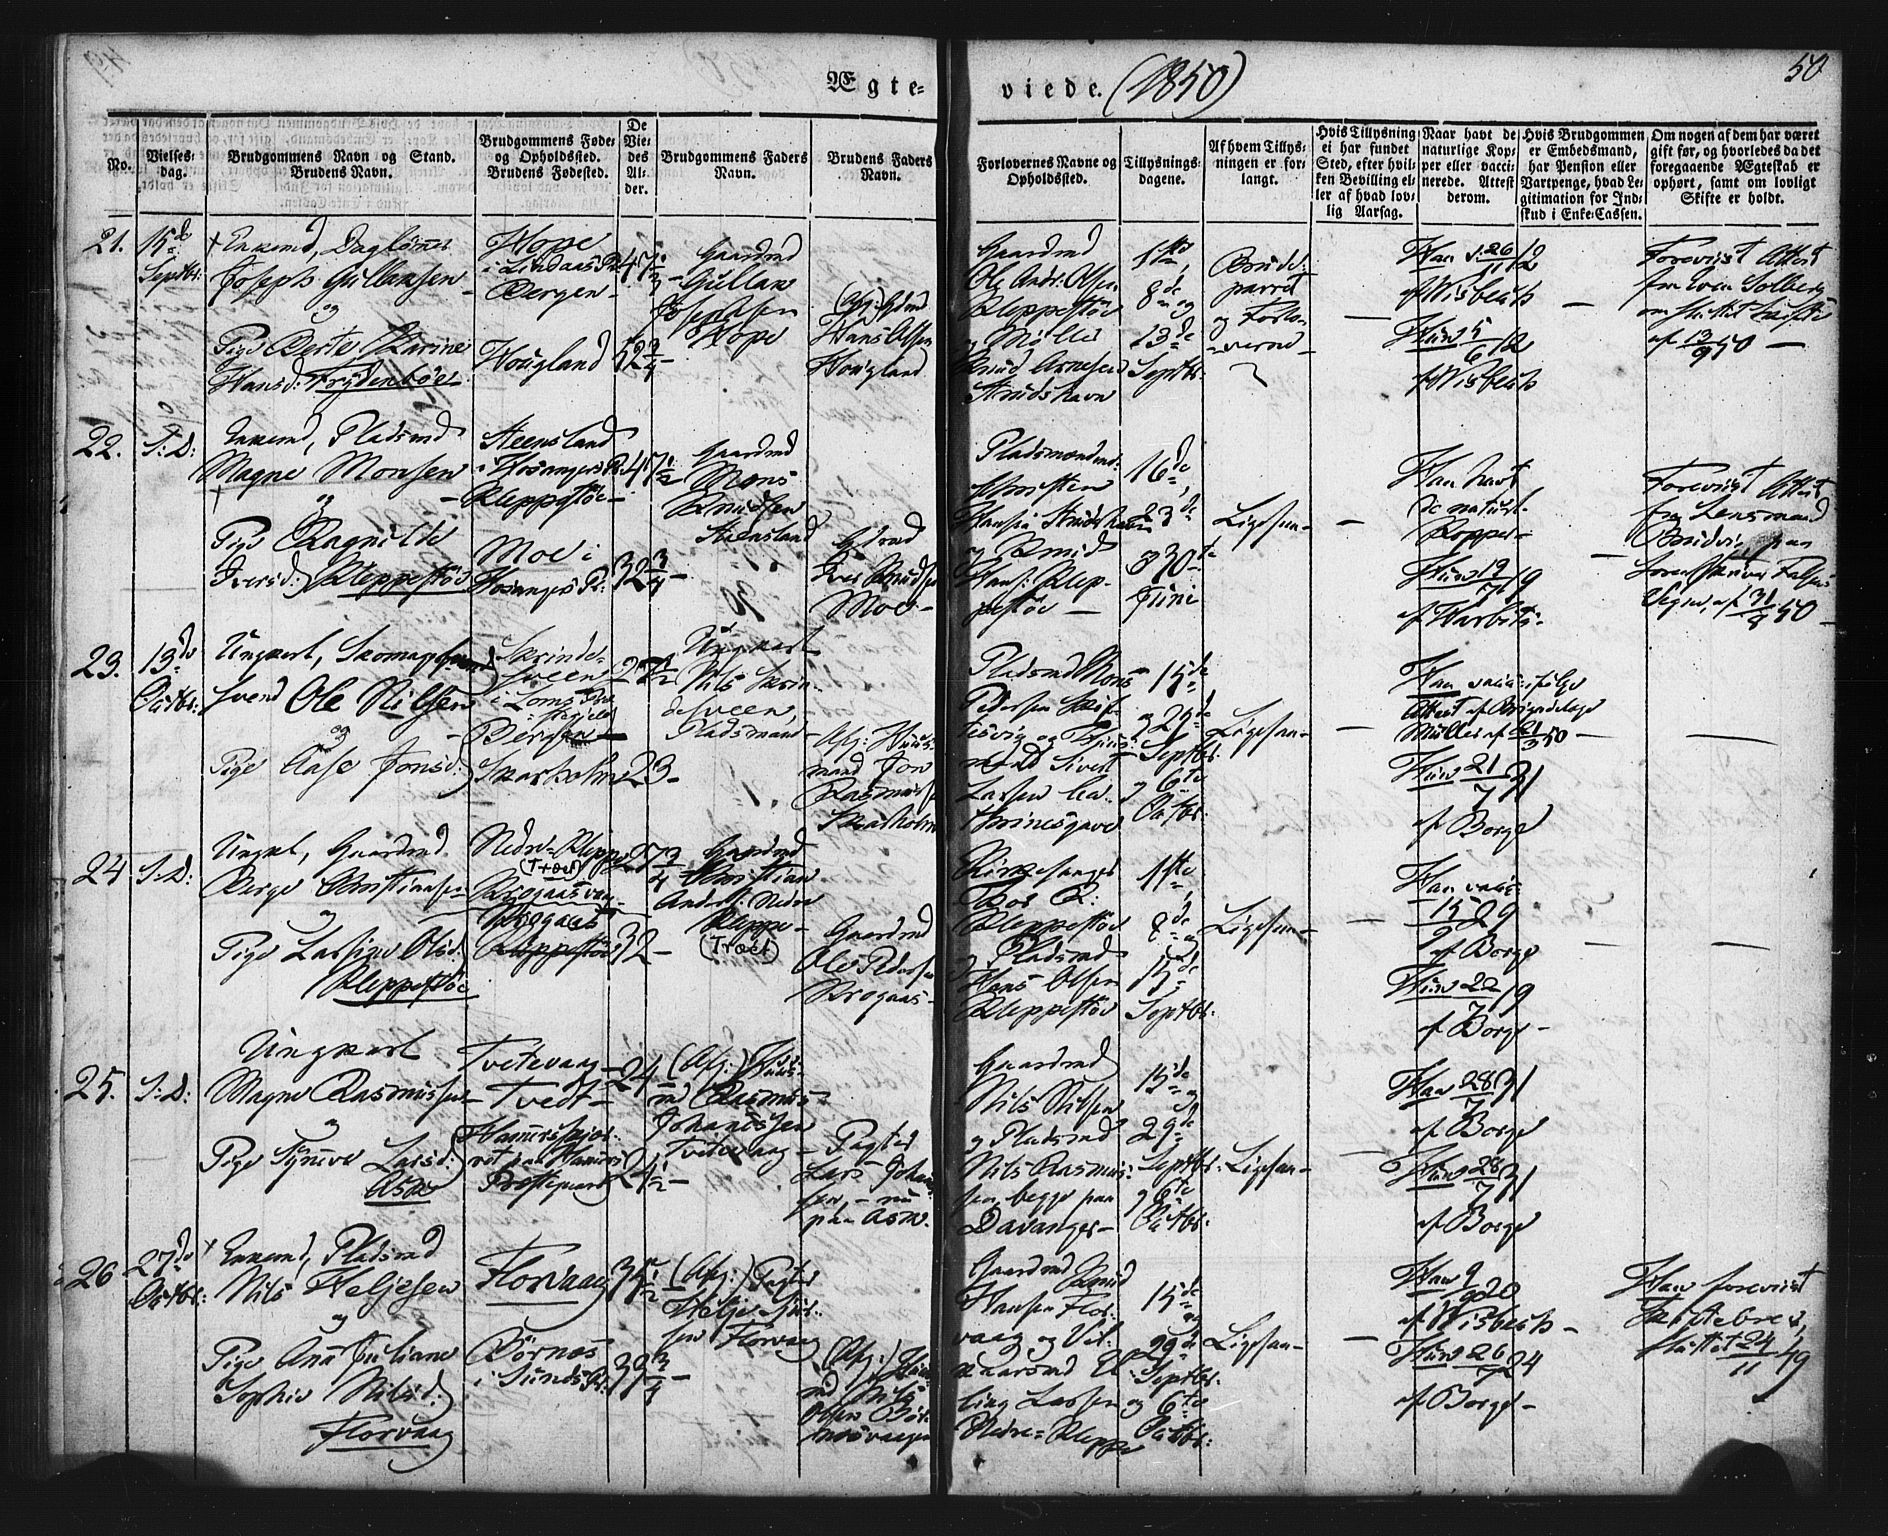 Ægte-
viede. (1850)
50
No.
Vielses-
dag.
Brudgommens Navn og Stand.
Brudens Navn.
Brudgommens Føde-
og Opholdssted.
Brudens Fødested.
De
Vie-
des
Al-
der.
Brudgommens Faders
Navn.
Brudens Faders
Navn.
Forlovernes Navne og
Opholdssted.
Tillysnings-
dagene.
Af hvem Tillys-
ningen er for-
langt.
Hvis Tillysning
ei har fundet
Sted, efter hvil-
ken Bevilling el-
ler af hvad lov-
lig Aarsag.
Naar havt de
naturlige Kop-
per eller vacci-
nerede. Attest
derom.
Hvis Brudgommen
er Embedsmand,
har Pension eller
Vartpenge, hvad Le-
gitimation for Ind-
skud i Enke-Cassen.
Om nogen af dem har været
gift før, og hvorledes da det
foregaaende Ægteskab er
ophørt, samt om lovligt
Skifte er holdt.
21.
15de
Septbr:
Enkemd, Dagløner
Joseph Gullaksen
og
Pige Berte Karine
Hansd: Frydenbøe
Hope
i Lindaas Pr:
Bergen
Hougland
47½
52¾
Gaardmd
Gullak
Josephsen
Hope
(Afg:) Grdmd
Hans Olsen
Hougland
Gaardmd
Ole Andr: Olsen
Kleppestøe
og Møller
Knud Arnesen
Strudshavn
1ste,
8de og
13de
Septbr.
Brude-
parret
og Forlo-
verne
Han 26/11 12
af Wisbech
Hun 5/6 12
af Wisbech
Forevist Attest
fra Even Solberg
om sluttet Skifte
af 13/9 50
22.
S: D:
Enkemd, Pladsmd
Magne Monsen
og
Pige Ragnilde
Iversd: Kleppestøe
Steensland
i Hosangers Pr:
Kleppestøe
Moe i
Hosangers Pr:
47½
32¾
Gaardmd
Mons
Knudsen
Steensland
Grdmd
Iver Knudsen
Moe
Pladsmændene
Christen
Hansen Strudshavn
og Knud
Hans: Klep-
pestøe
16de,
23de
og 30te
Juni
Ligesaa
Han havt
de naturl.
Kopper
Hun 19/7 19
af Harbitz
Forevist Attest
fra Lensmand
af 31/8 50
23.
13de
Octbr:
Ungkarl, Skomager-
svend Ole Nilsen
og
Pige Aase Jonsd:
Skrinde-
sveen
i Loms Pr:
Bergen
Skarholm
27½
23
Ungkarl
Nils Skrin-
desveen,
Pladsmand
Afg: Huus-
mand Jon
Rasmusse
Skarholm
Pladsmd Mons
Pedersen
og
Sivert
Larsen Ca-
thrinesgave
15de
og 29de
Septbr.
og 6te
Octbr.
Ligesaa
Han vacc: ifølge
Attest af Brigadelæge
Müller af 21/3 50
Hun 21/7 31
af Borge
24
S: D:
Ungkl, Gaardmd.
Berge Christiansen
og
Pige Larsine Olsd:
Kleppestøe
Nedre-Kleppe
(Træet)
Krogaasvaag
Krogaas
Kleppestøe
27¾
32
Gaardmd
Christian
Anders: Nedre
Kleppe
(Træet)
Gaardmd
Ole Pedersen
Krogaas
Kirkesanger
Boe R:
Kleppestøe
og Pladsmd
Hans Olsen
Kleppestøe
1ste,
8de og
15de
Septbr.
Ligesaa
Han vacc:
15/9 29
af Borge
Hun 22/7 19
af Borge
25.
S: D:
Ungkarl
Magne Rasmussen
og
Pige Synneve Larsd:
Ask
Tvetevaag
Tvedt
Hammersskjær-
ret paa Hammers
Prestegaard
24
24½
(Afg:) Huus-
md Rasmus
Johannessen
Tvetevaag
Pagter
Lars Johan-
sen, nu
paa Ask.
Gaardmd
Nils Nilsen
og Pladsmd
Nils Rasmus-
sen, begge paa
Davanger
15de
og
29de
Septbr.
og 6te
Octbr.
Ligesaa
Han 28/7 31
af Borge
Hun 28/7 31
af Borge
26
27de
Octbr:
Enkemd, Pladsmd
Nils Heljesen
og
Pige Ane Juliane
Sophie Nilsd:
Florvaag
Florvaag
Børnes
i Sunds Pr:
35½
39¾
(Afg:) Pagter
Helje Lar-
sen Florvaag
(Afg:) Huus-
md Nils
Olsen Bør-
nesvaagen
Gaardmd Knud
Hansen Flor-
vaag og
El-
ling Larsen
Nedre-Kleppe
15de
og
29de
Septbr.
og 6te
Octbr:
Ligesaa
Han 9/9 20
af Wisbech
Hun 26/7 24
af Borge
Han forevist
Skiftebrev,
sluttet 24/11 49